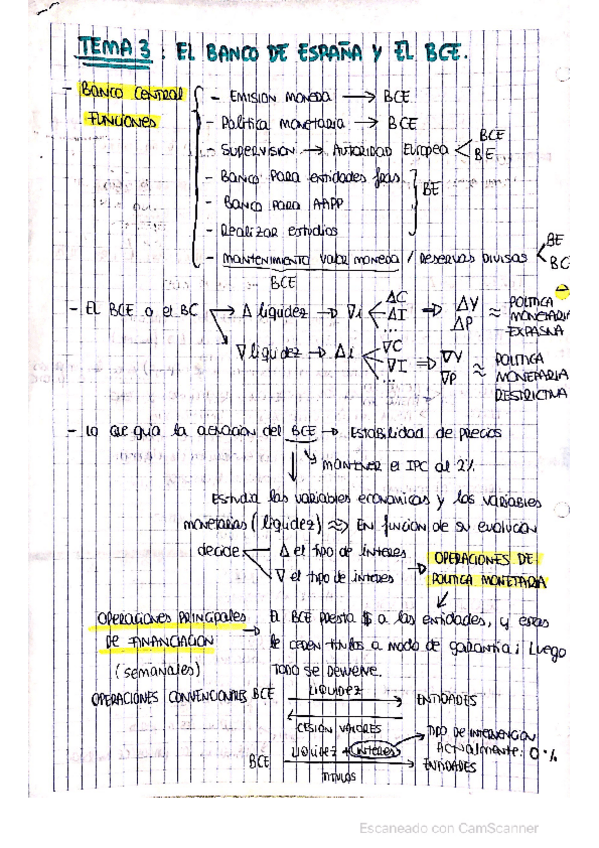 TEMA 3 : EL BANCO DE ESPAÑA Y EL BCE.
- BANCO CENTRAL
FUNCIONES
- EMISION MONEDA → BCE
- Politica monetaria → BCE
- SUPERVISION → AUTORIDAD Europea < BCE
BE
- BANCO PARA entidades fras.
- BANCO PARA AAPP
BE
- Realizar estudios
- MANTENIMIENTO valor moneda / RESERVAS DIVISAS < BE
BC
BCE
- EL BCE o el BC → Δ liquidez → ∇i < ΔC
ΔI
...
⇒ ΔY
ΔP
≈ POLITICA
MONETARIA
EXPASNA
∇ liquidez → Δi < ∇C
∇I
...
⇒ ∇Y
∇P
≈ POLITICA
MONETARIA
RESTRICTIVA
- lo que guia la actuacion del BCE → Estabilidad de precios
↘ MANTENER el IPC al 2%
Estudia las variables economicas y las variables
monetarias (liquidez) ⇒ EN funcion de su evolucion
decide
Δ el tipo de interes
∇ el tipo de interes
→ OPERACIONES DE
POLITICA MONETARIA
OPERACIONES PRINCIPALES
DE FINANCIACION
(semanales)
→ El BCE presta $ a las entidades, y esas
le ceden titulos a modo de garantia; Luego
TODO se devuelve.
OPERACIONES CONVENCIONALES BCE LIQUIDEZ → ENTIDADES
← CESION VALORES
BCE LIQUIDEZ + INTERES → TIPO DE INTERVENCION
ACTUALMENTE: 0%
ENTIDADES
TITULOS
Escaneado con CamScanner